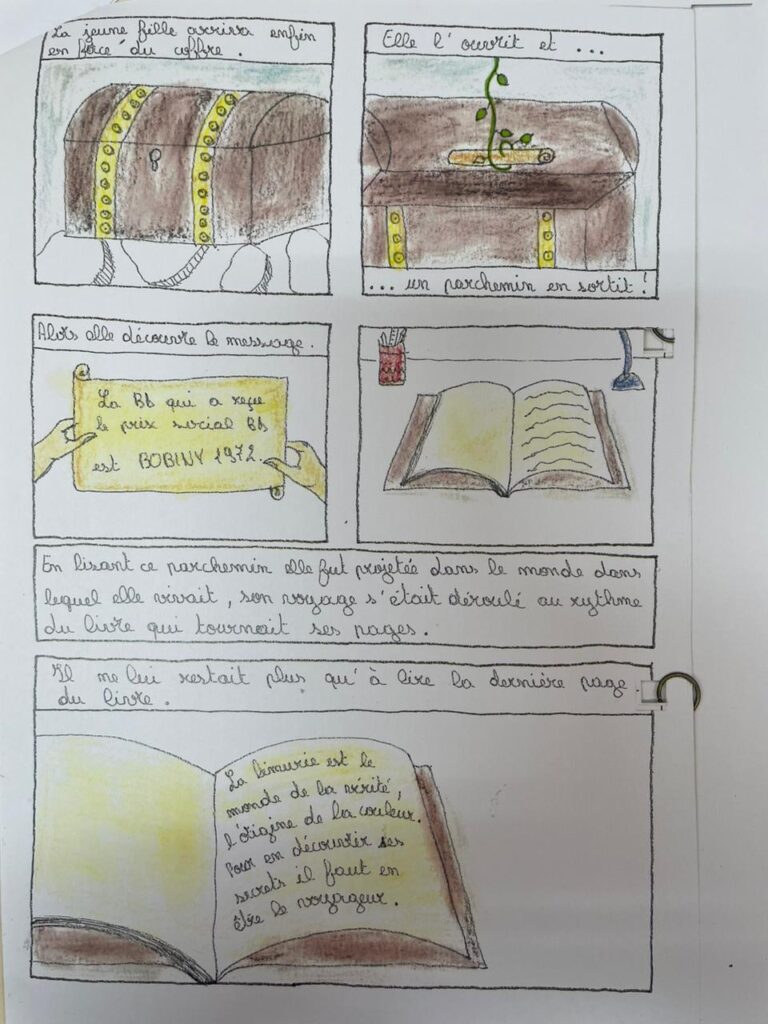 La jeune fille arriva enfin
en face du coffre.
Elle l'ouvrit et ...
... un parchemin en sortit !
Alors elle découvre le message.
La Bb qui a reçu
le prix surial Bb
est BOBINY 1972.
En lisant ce parchemin elle fut projetée dans le monde dans
lequel elle vivait, son voyage s'était déroulé au rythme
du livre qui tournait ses pages.
Il me lui restait plus qu'à lire la dernière page
du livre.
La limurie est le
monde de la vérité,
l'origine de la couleur.
Pour en découvrir ses
secrets il faut en
être le voyageur.